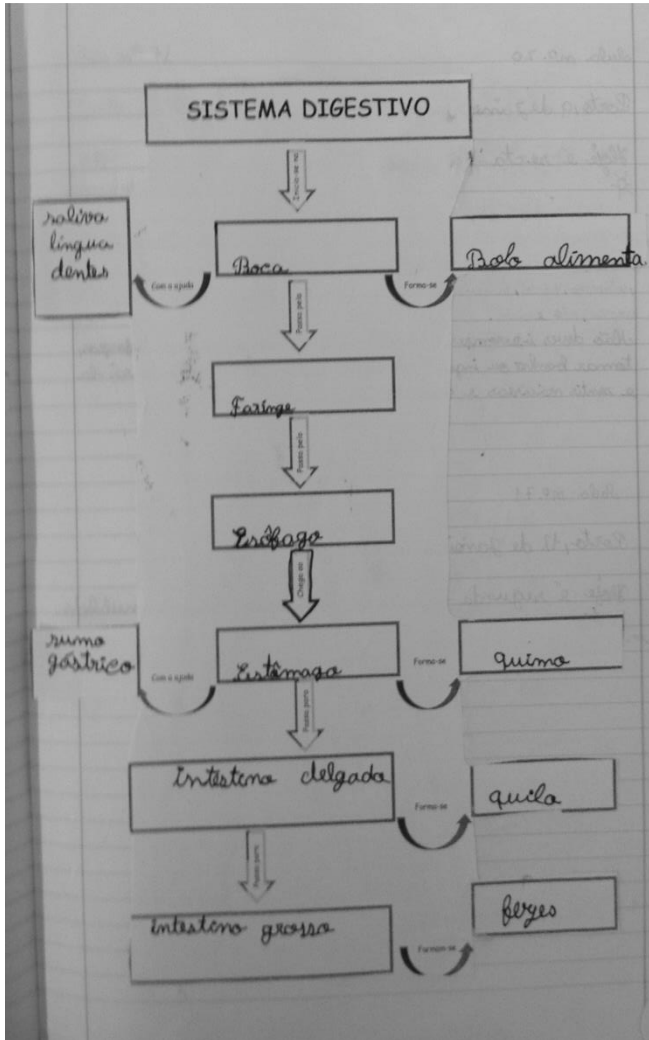 SISTEMA DIGESTIVO
Inicia-se na
saliva
língua
dentes
Com a ajuda
Boca
Forma-se
Bolo alimenta
Passa pela
Faringe
Passa pelo
Esôfago
Chega ao
sumo
gástrico
Com a ajuda
Estômago
Forma-se
quimo
Passa para
intesteno delgado
Forma-se
quilo
Passa para
intesteno grosso
Formam-se
fezes